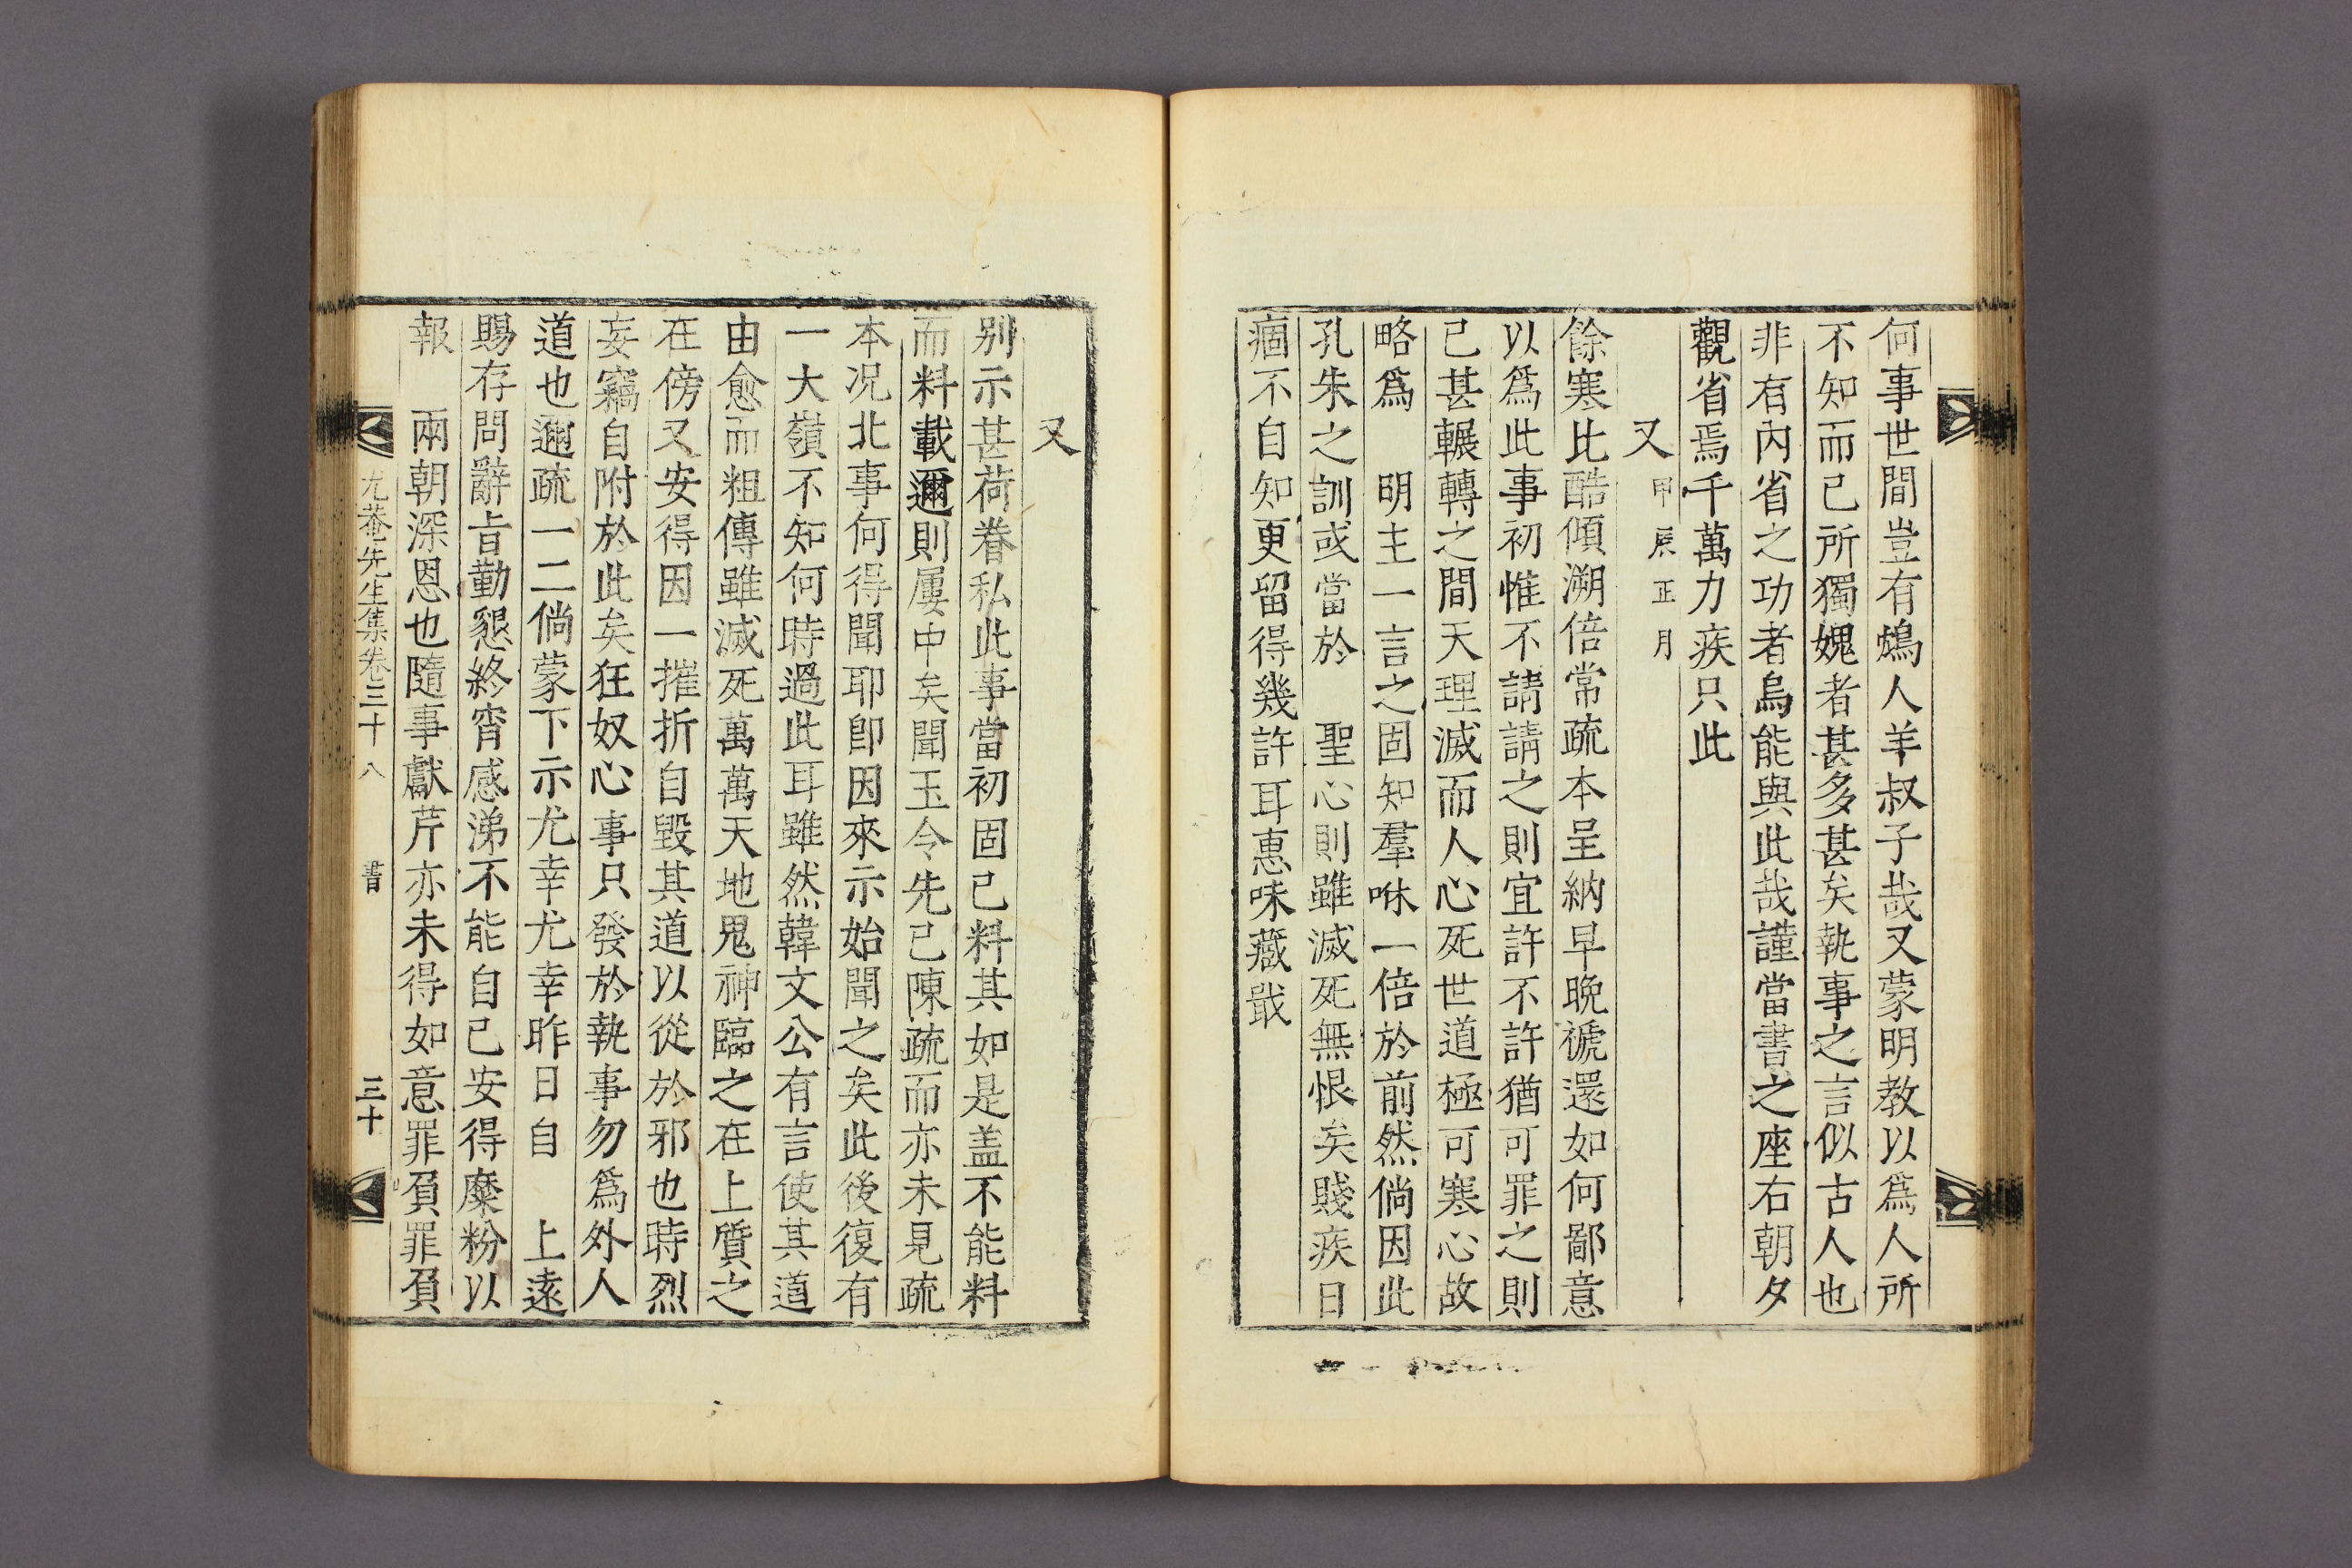 何事世間豈有鴆人羊叔子哉又蒙明教以爲人所
不知而己所獨媿者甚多甚矣執事之言似古人也
非有內省之功者烏能與此哉謹當書之座右朝夕
觀省焉千萬力疾只此
又 甲辰正月
餘寒比酷傾溯倍常疏本呈納早晩褫還如何鄙意
以爲此事初惟不請請之則宜許不許猶可罪之則
已甚輾轉之間天理滅而人心死世道極可寒心故
略爲 明主一言之固知羣咻一倍於前然倘因此
孔朱之訓或當於 聖心則雖滅死無恨矣賤疾日
痼不自知更留得幾許耳惠味藏戢
又
別示甚荷眷私此事當初固已料其如是盖不能料
而料載邇則屢中矣聞玉令先已陳疏而亦未見疏
本况北事何得聞耶卽因來示始聞之矣此後復有
一大嶺不知何時過此耳雖然韓文公有言使其道
由愈而粗傳雖滅死萬萬天地鬼神臨之在上質之
在傍又安得因一摧折自毀其道以從於邪也時烈
妄竊自附於此矣狂奴心事只發於執事勿爲外人
道也邇疏一二倘蒙下示尤幸尤幸昨日自 上遠
賜存問辭旨勤懇終宵感涕不能自已安得糜粉以
報 兩朝深恩也隨事獻芹亦未得如意罪負罪負
尤菴先生集卷三十八 書 三十